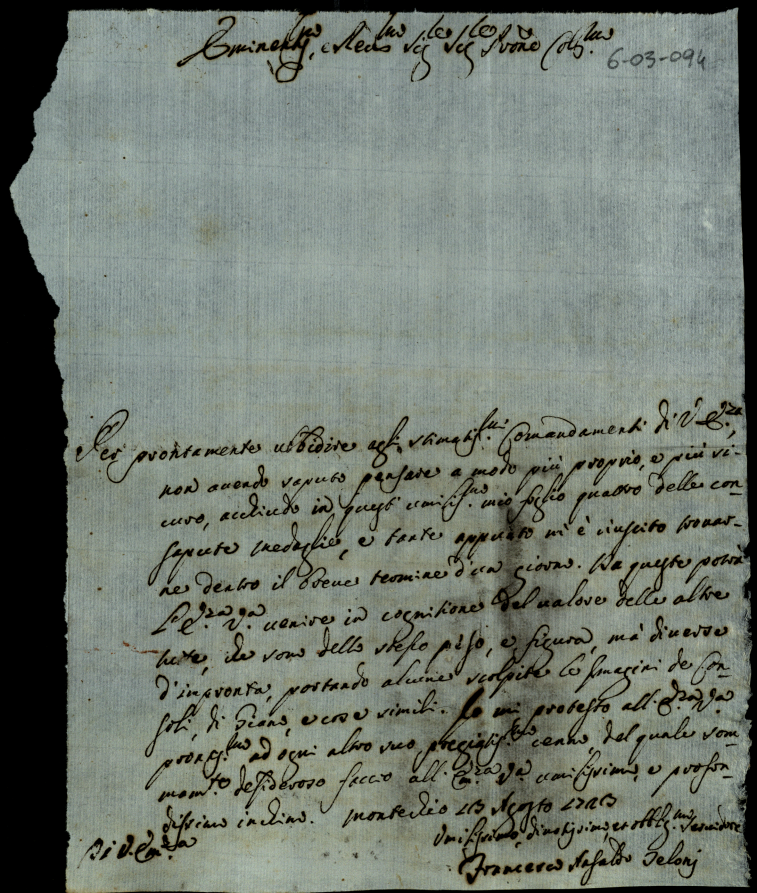 Eminent.mo, e Reu.mo Sig.re Sig.re P'rone Coll.mo
6-03-094
Per prontamente ubbidire agli stimatis.mi Comandamenti di V. E.za,
non auendo saputo pensare a modo più proprio, e più si-
curo, acchiudo in questo umilis.mo mio foglio quattro delle con-
sapute medaglie, e tante appunto mi è riuscito trouar-
ne dentro il breue termine d'un giorno. Da queste potrà
l'E.za V.a uenire in cognitione del ualore delle altre
tutte, che sono dello stesso peso, e figura, mà diuerse
d'impronta, portando alcune scolpite le Imagini de Con-
soli, di Giano, e cose simili. Io mi protesto all' E.za V.a
prontis.mo ad ogni altro suo pregiatis.mo cenno del quale som-
mam.te desideroso faccio all' E.za V.a umilissimo, e profon-
dissimo inchino. Montecchio 23 Agosto
Di V. Em.za
Umilissimo, diuotissimo et obblig.mo Seruidore
Francesco Ansaldo Teloni